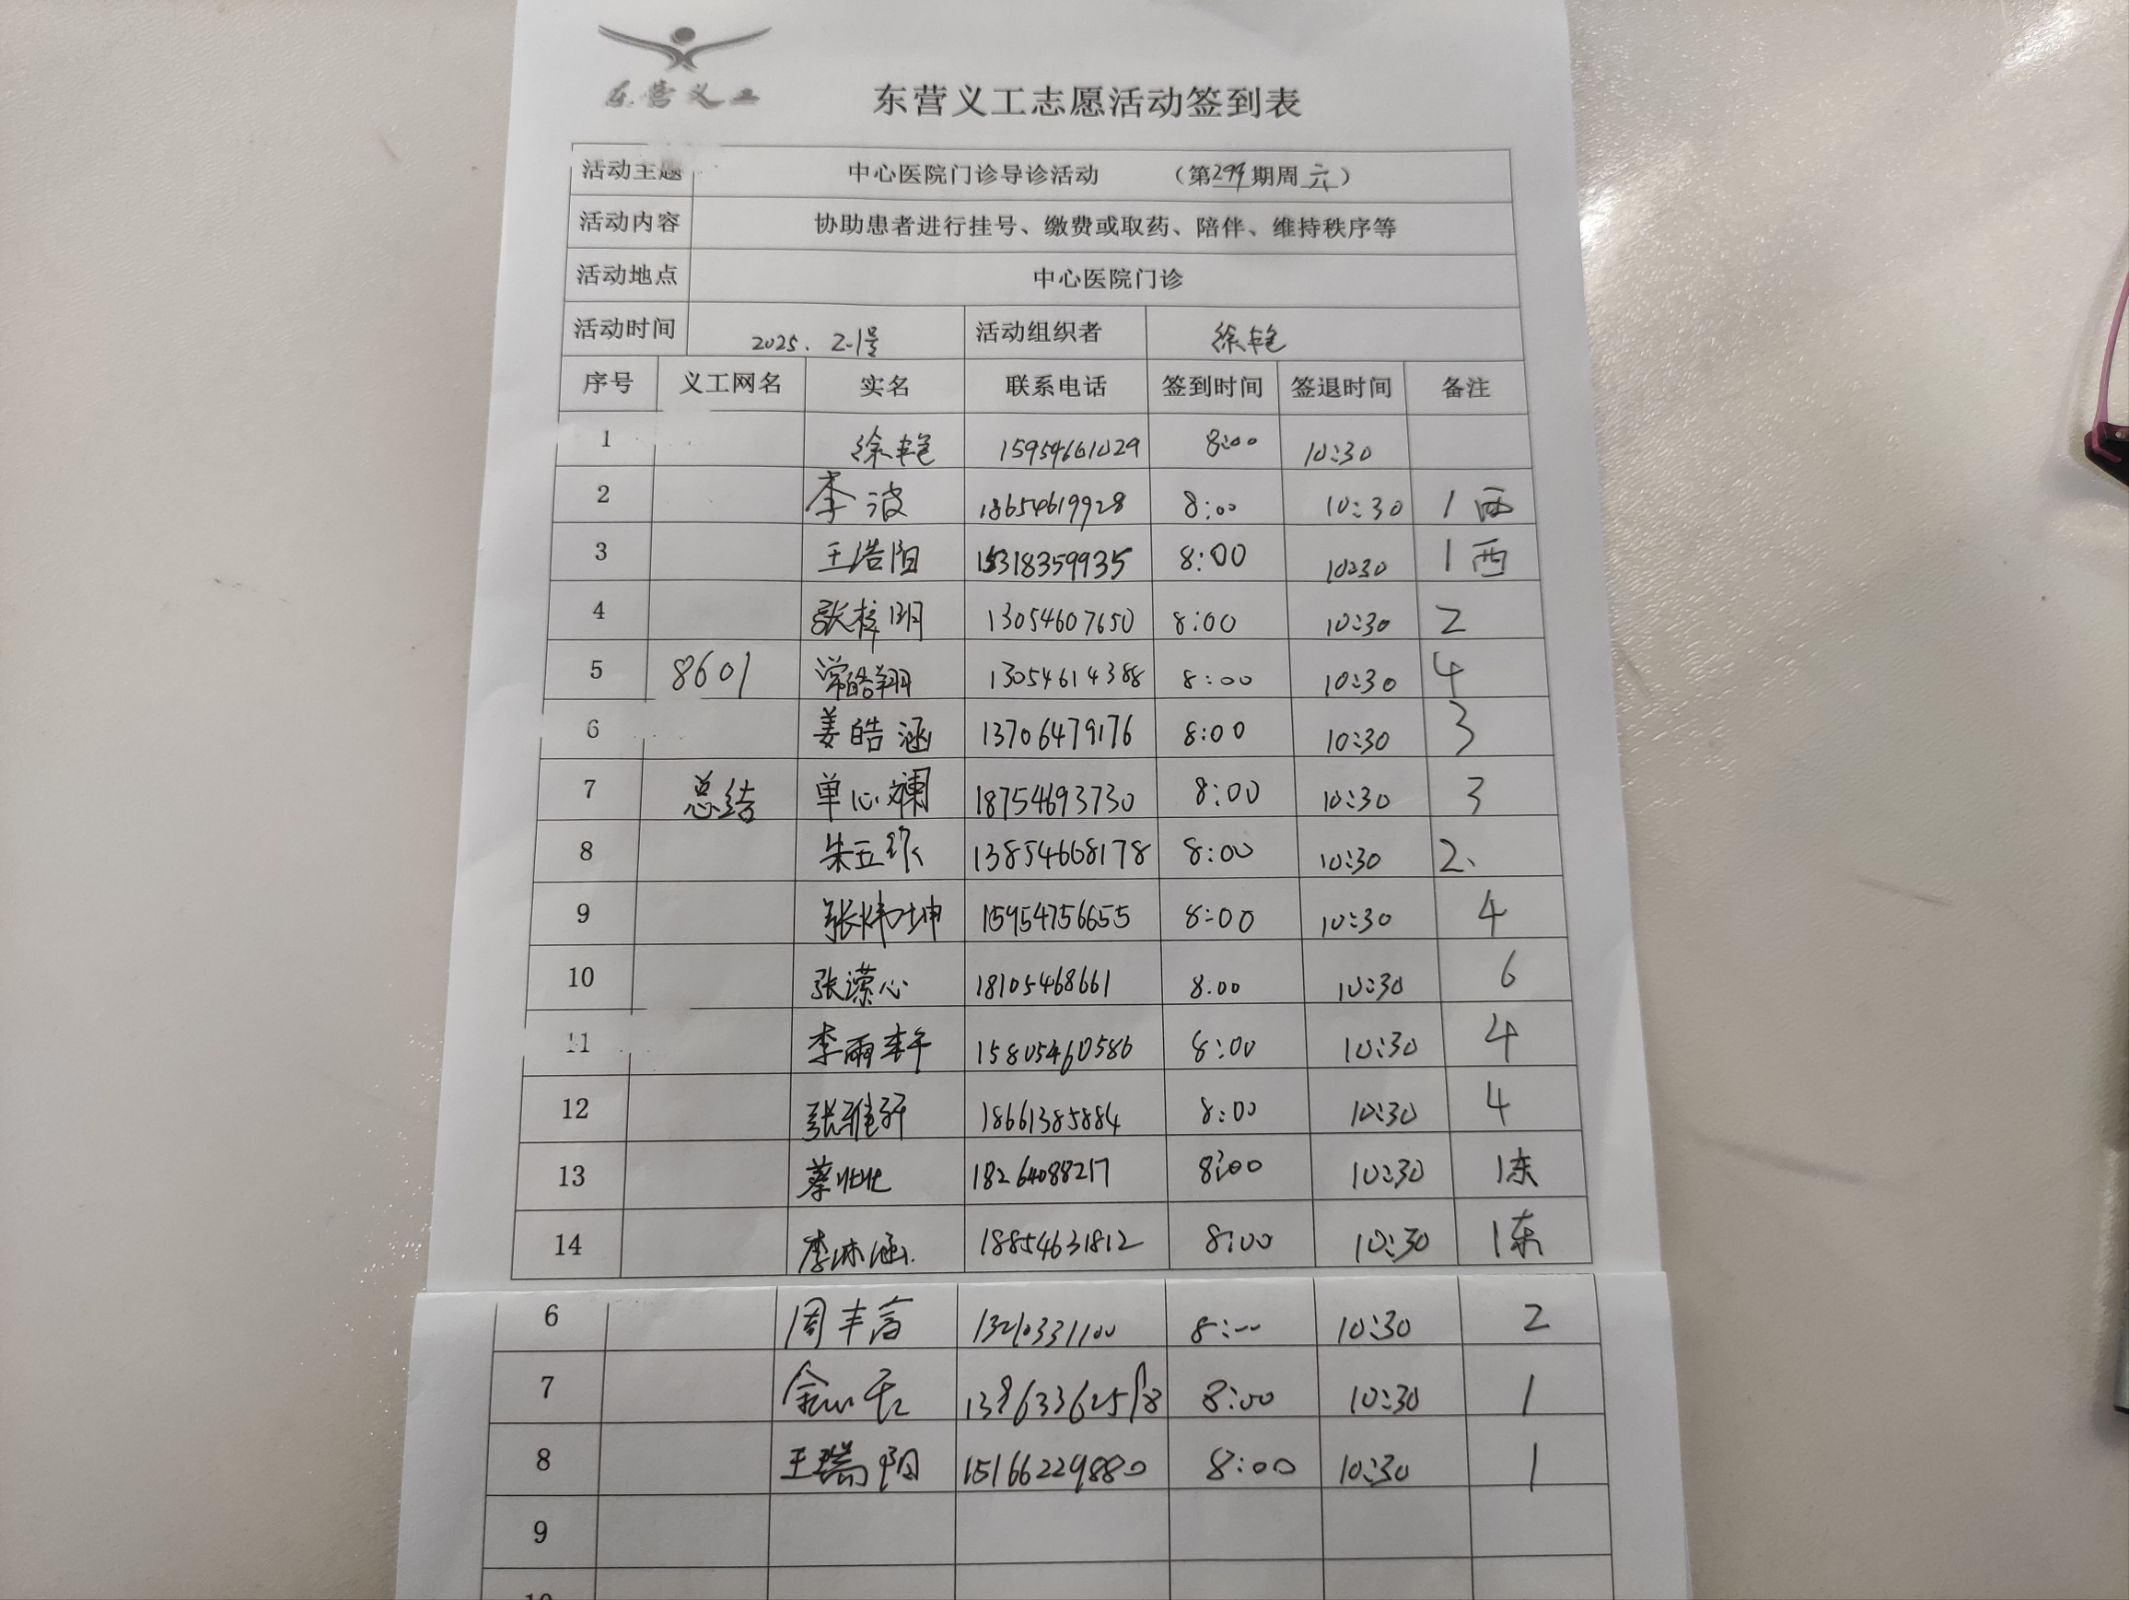 东营义工
东营义工志愿活动签到表
活动主题 中心医院门诊导诊活动 （第299期周六）
活动内容 协助患者进行挂号、缴费或取药、陪伴、维持秩序等
活动地点 中心医院门诊
活动时间 2025.2.1号 活动组织者 徐艳
序号 义工网名 实名 联系电话 签到时间 签退时间 备注
1 徐艳 15954661029 8:00 10:30
2 李波 18654619928 8:00 10:30 1西
3 王浩阳 15318359935 8:00 10:30 1西
4 张梓明 13054607650 8:00 10:30 2
5 8601 常皓翔 13054614388 8:00 10:30 4
6 姜皓涵 13706479176 8:00 10:30 3
7 总结 单心斓 18754693730 8:00 10:30 3
8 朱五 13854668178 8:00 10:30 2、
9 张炜坤 15954756655 8:00 10:30 4
10 张潆心 18105468661 8:00 10:30 6
11 李雨轩 15805460586 8:00 10:30 4
12 张雅轩 18661385884 8:00 10:30 4
13 蔡壮壮 18264088217 8:00 10:30 1东
14 李沐涵 18854631812 8:00 10:30 1东
6 周丰富 13210331100 8:00 10:30 2
7 8:00 10:30 1
8 王瑞阳 15166229880 8:00 10:30 1
9
10